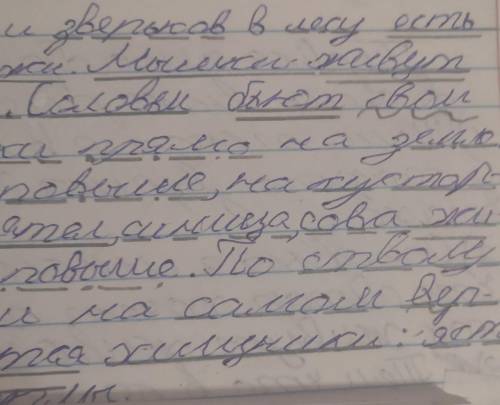 и зверьков в лесу есть
жи. Мышки живут
. Соловьи бьют свои
ки прямо на земл
повыше, на кустар-
ятел, синица, сова жи
повыше. По стволу
и на самом вер-
тся хищники: яст